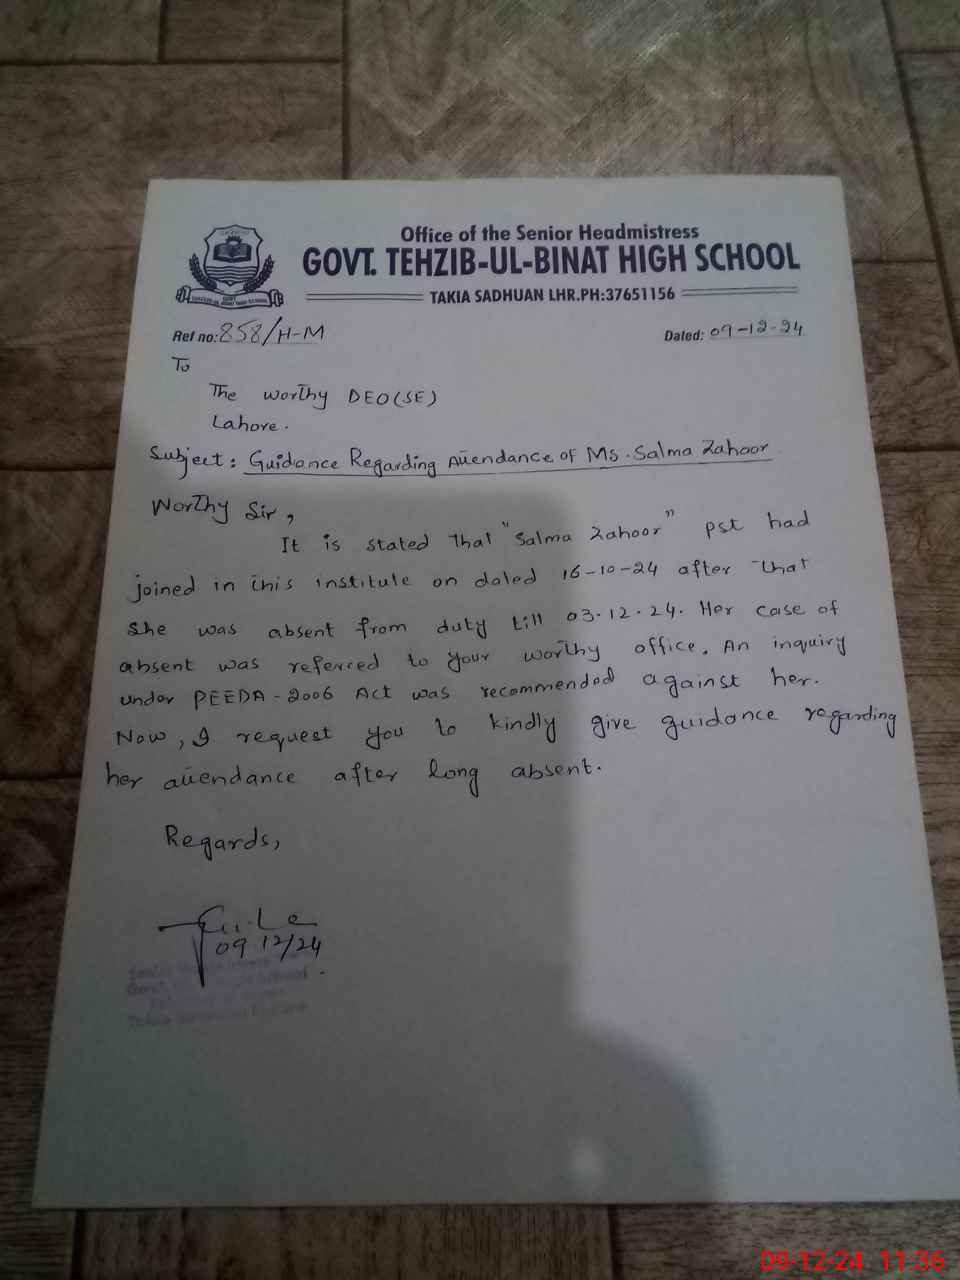 Office of the Senior Headmistress
GOVT. TEHZIB-UL-BINAT HIGH SCHOOL
TAKIA SADHUAN LHR.PH:37651156
Ref no: 858/H-M Dated: 09-12-24
To
The Worthy DEO(SE)
Lahore.
Subject: Guidance Regarding Attendance of Ms. Salma Zahoor
Worthy Sir,
It is stated that "Salma Zahoor" pst had
joined in this institute on dated 16-10-24 after that
she was absent from duty till 03.12.24. Her case of
absent was referred to your worthy office. An inquiry
under PEEDA-2006 Act was recommended against her.
Now, I request you to kindly give guidance regarding
her attendance after long absent.
Regards,
09 12/24
09-12-24 11:36